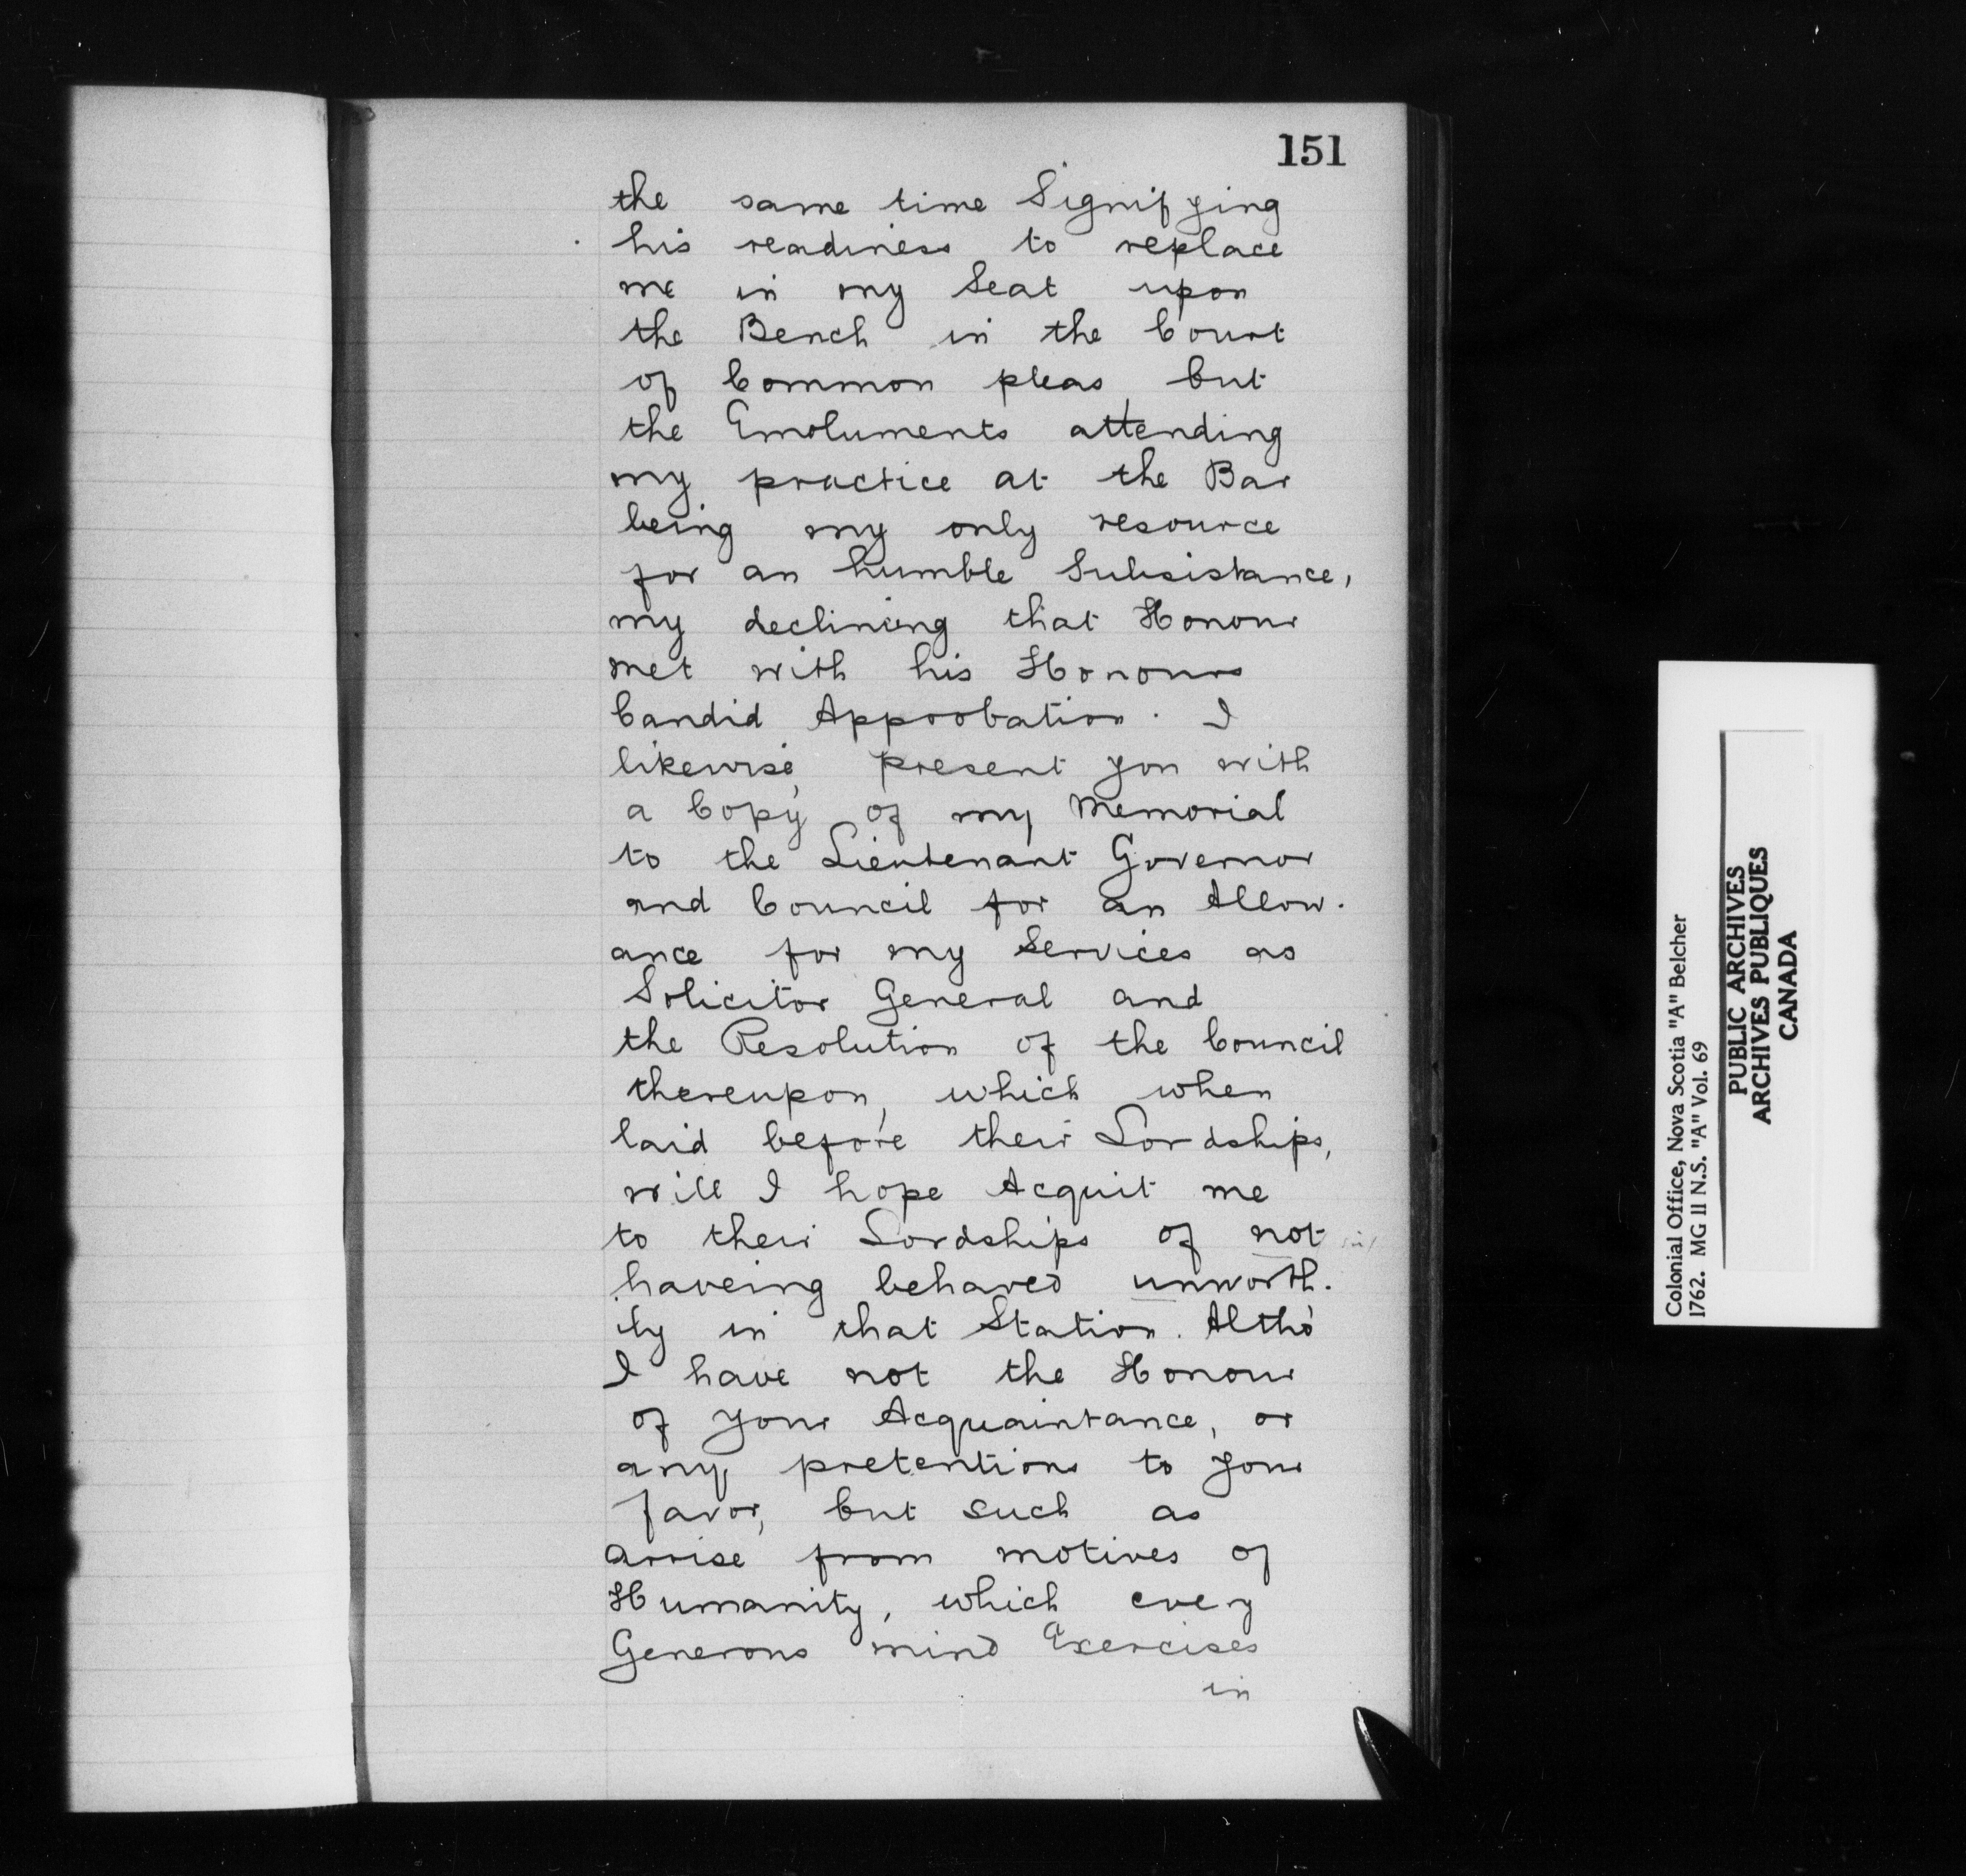 151
the same time Signifying
his readiness to replace
me in my Seat upon
the Bench in the Court
of Common pleas but
the Emoluments attending
my practice at the Bar
being my only resource
for an humble Subsistance,
my declining that Honour
met with his Honours
Candid Approbation. I
likewise, present you with
a Copy of my Memorial
to the Lieutenant Governor
and Council for an Allow-
ance for my Services as
Solicitor General and
the Resolution of the Council
thereupon, which when
laid before their Lordships,
will I hope Acquit me
to their Lordships of not
haveing behaved unworth-
ily in that Station. Altho'
I have not the Honour
of your Acquaintance, or
any pretentions to your
favor, but such as
arrise from motives of
Humanity, which every
Generous mind Exercises
in
Colonial Office, Nova Scotia "A" Belcher
1762. MG 11 N.S. "A" Vol. 69
PUBLIC ARCHIVES
ARCHIVES PUBLIQUES
CANADA